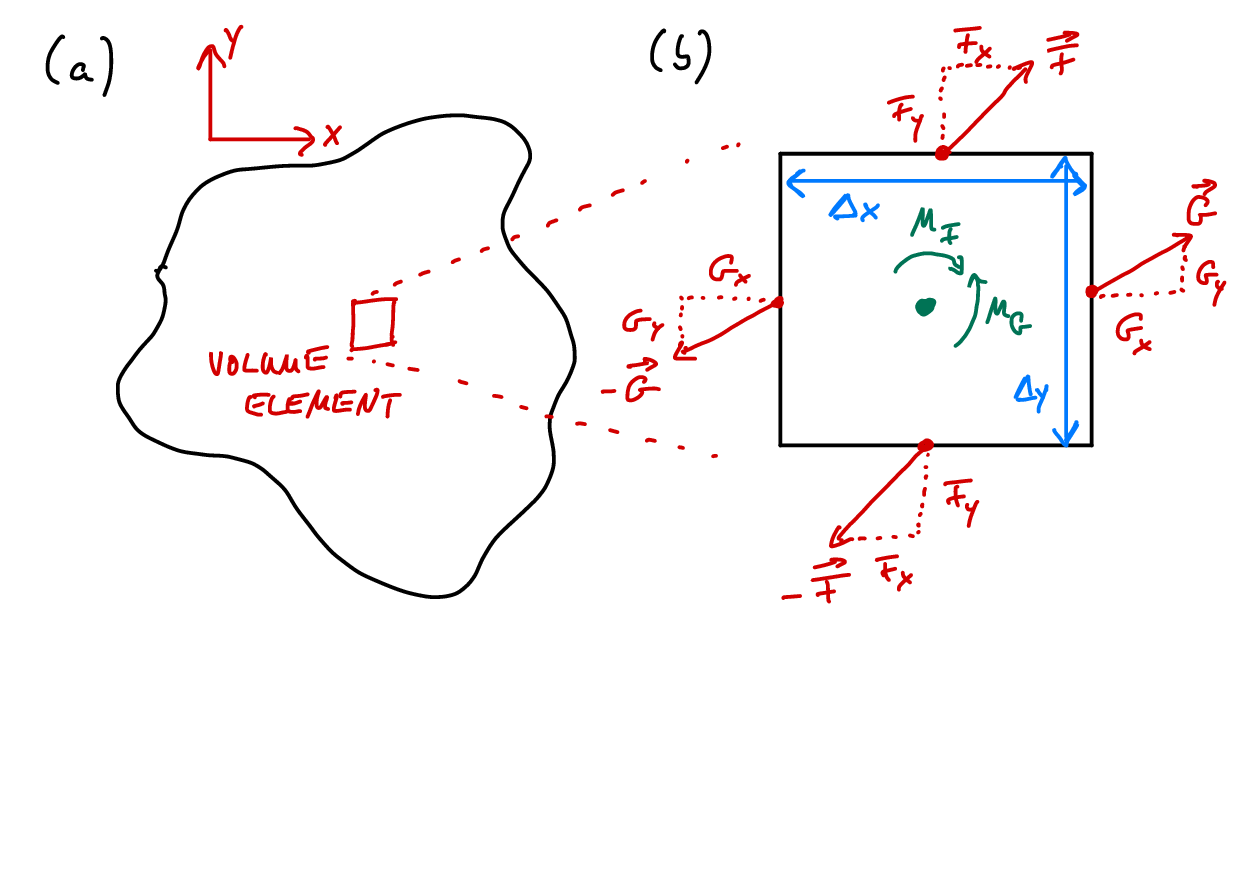 (a)
Y
X
VOLUME
ELEMENT
(b)
F_x
F⃗
F_y
Δx
M_F
M_G
Δy
G⃗
G_y
G_x
G_x
G_y
-G⃗
F_y
F_x
-F⃗